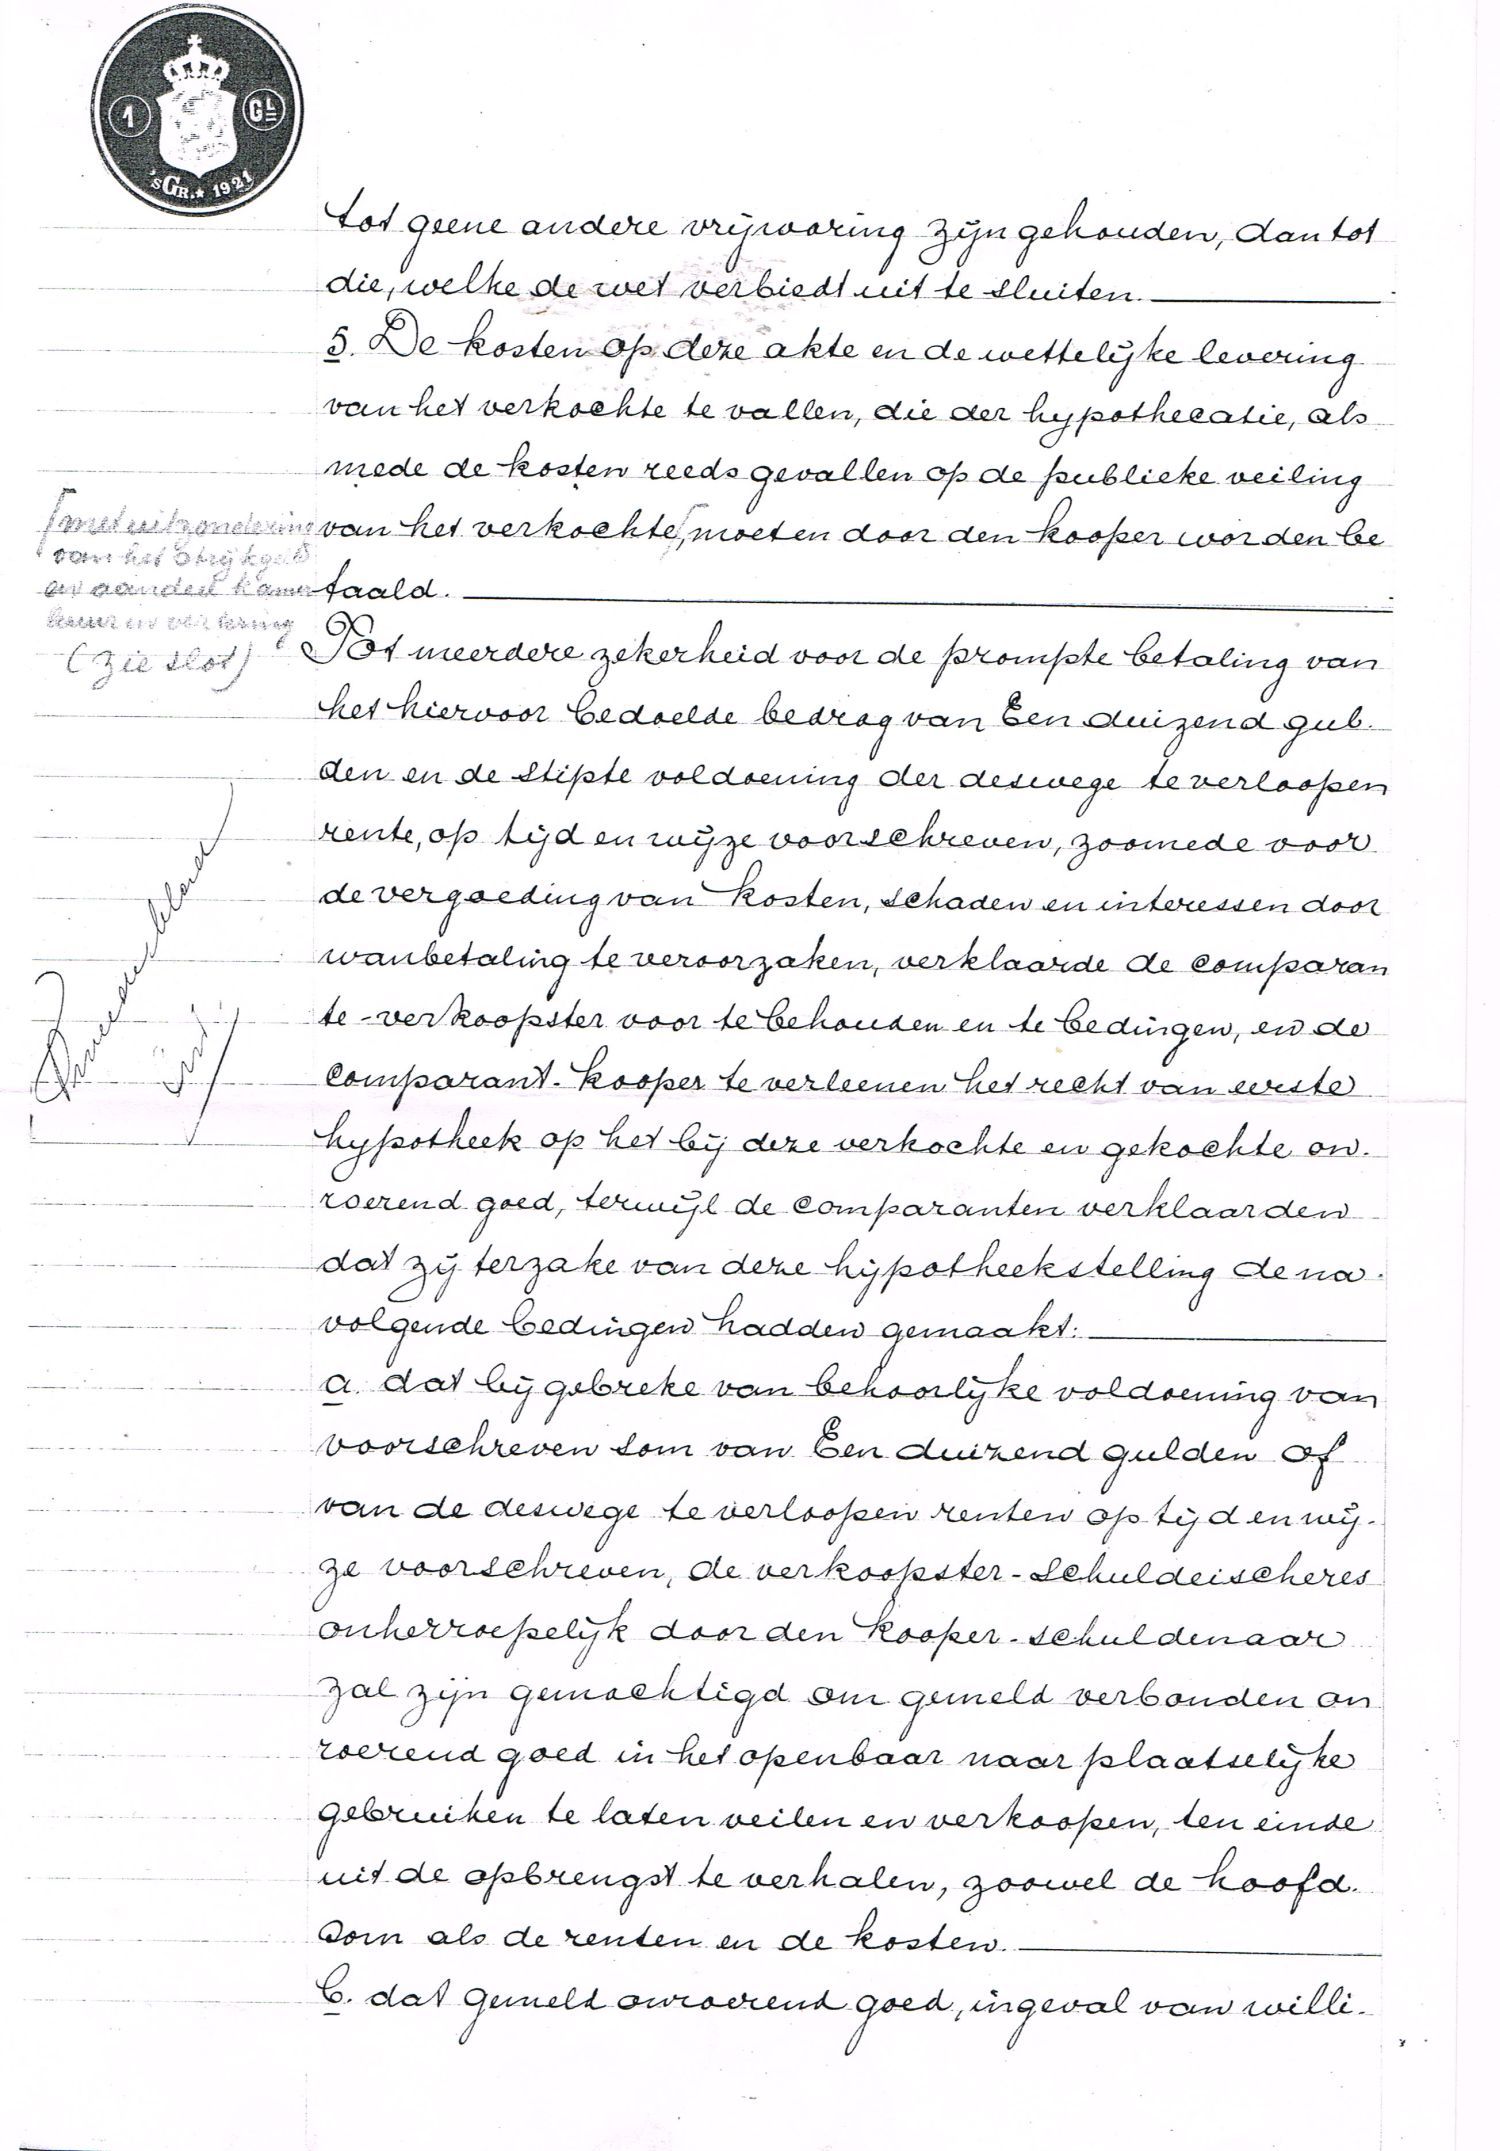 1 GL
'sGR.★1921
tot geene andere vrijwaring zijn gehouden, dan tot
die, welke de wet verbiedt uit te sluiten.
5. De kosten op deze akte en de wettelijke levering
van het verkochte te vallen, die der hypothecatie, als
mede de kosten reeds gevallen op de publieke veiling
van het verkochte, moeten door den kooper worden be
taald.
met uitzondering
van het strijkgeld
en aandeel kamer
huur en vertering
(zie slot)
Tot meerdere zekerheid voor de prompte betaling van
het hiervoor bedoelde bedrag van Een duizend gul-
den en de stipte voldoening der deswege te verloopen
rente, op tijd en wijze voorschreven, zoomede voor
de vergoeding van kosten, schaden en interessen door
wanbetaling te veroorzaken, verklaarde de comparan
te-verkoopster voor te behouden en te bedingen, en de
comparant-kooper te verleenen het recht van eerste
hypotheek op het bij deze verkochte en gekochte on-
roerend goed, terwijl de comparanten verklaarden
dat zij terzake van deze hypotheekstelling de na-
volgende bedingen hadden gemaakt:
a. dat bij gebreke van behoorlijke voldoening van
voorschreven som van Een duizend gulden of
van de deswege te verloopen renten op tijd en wij-
ze voorschreven, de verkoopster-schuldeischeres
onherroepelijk door den kooper-schuldenaar
zal zijn gemachtigd om gemeld verbonden on
roerend goed in het openbaar naar plaatselijke
gebruiken te laten veilen en verkoopen, ten einde
uit de opbrengst te verhalen, zoowel de hoofd-
som als de renten en de kosten.
b. dat gemeld onroerend goed, ingeval van willi-